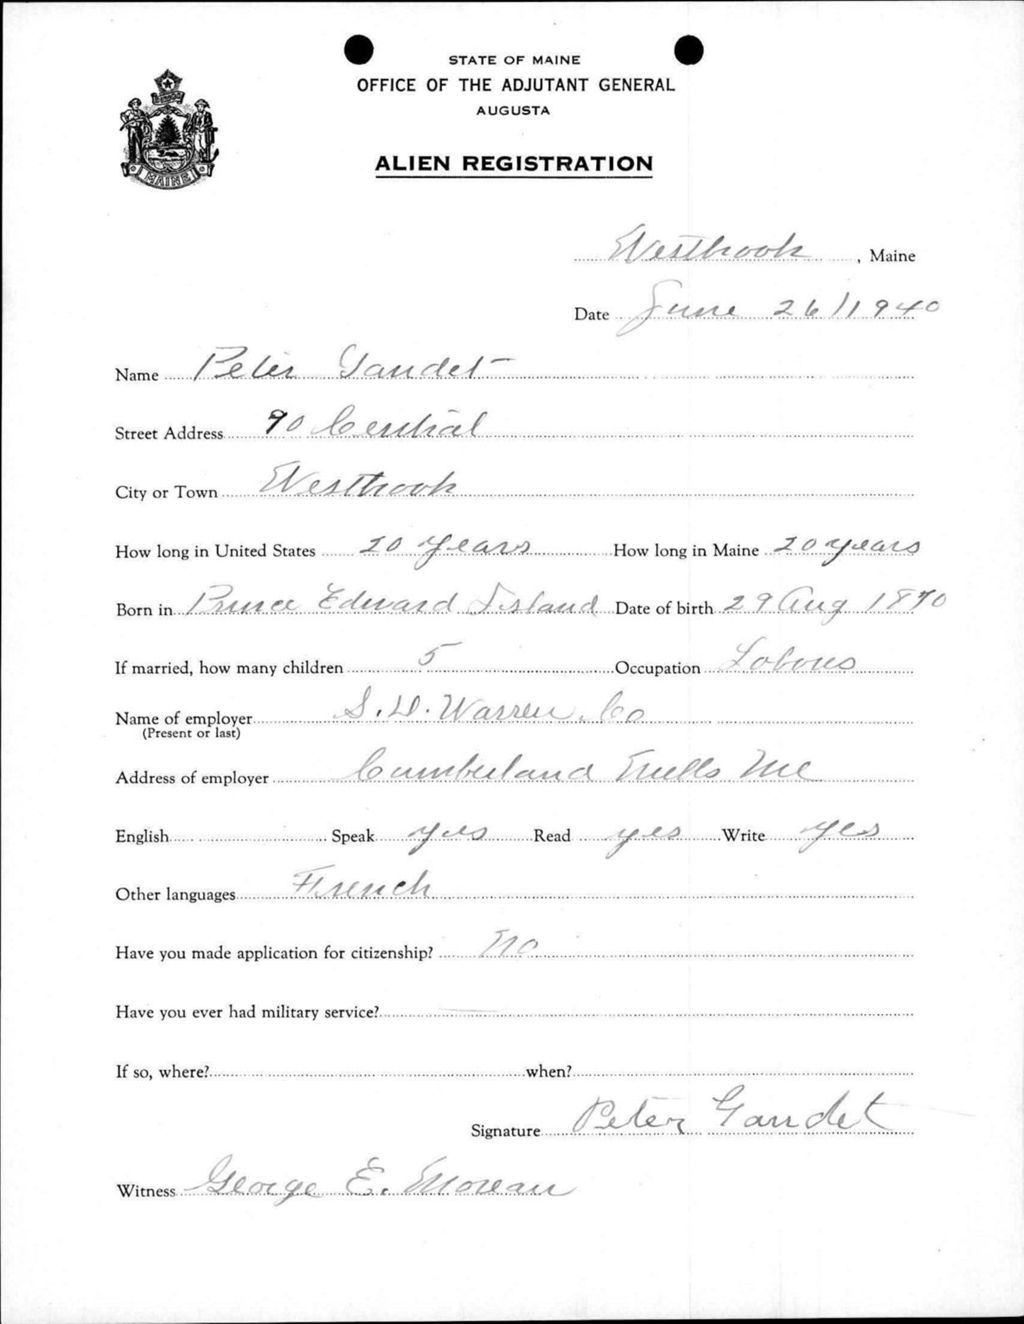 STATE OF MAINE
OFFICE OF THE ADJUTANT GENERAL
AUGUSTA
ALIEN REGISTRATION
MAINE
Westbrook, Maine
Date June 26/1940
Name Peter Gaudet
Street Address 90 Central
City or Town Westbrook
How long in United States 20 years How long in Maine 20 years
Born in Prince Edward Island Date of birth 29 Aug 1870
If married, how many children 5 Occupation
Name of employer S.D. Warren Co
(Present or last)
Address of employer Cumberland Mills Me
English Speak yes Read yes Write yes
Other languages French
Have you made application for citizenship? no
Have you ever had military service? —
If so, where? when?
Signature Peter Gaudet
Witness George E. Moreau